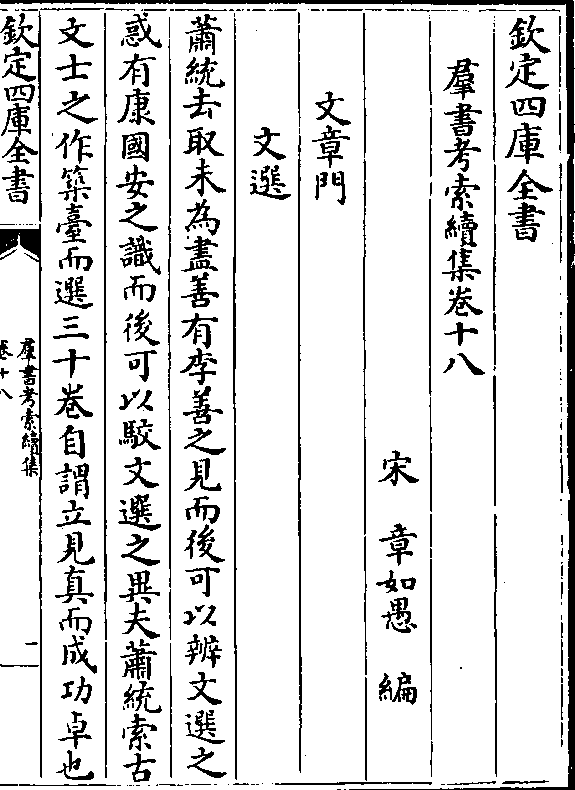 欽定四庫全書
羣書考索續集卷十八
宋 章如愚 編
文章門
文選
蕭統去取未為盡善有李善之見而後可以辨文選之
惑有康國安之識而後可以駮文選之異夫蕭統索古
文士之作築臺而選三十卷自謂立見真而成功卓也
欽定四庫全書
羣書考索續集
卷十八
一